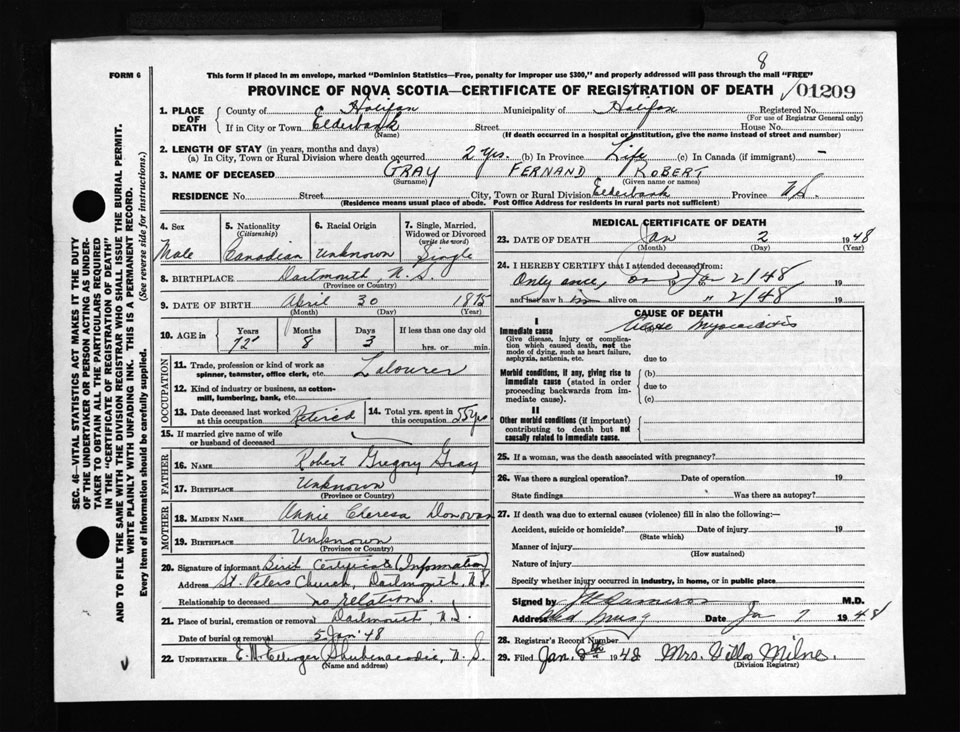 8
FORM 6
This form if placed in an envelope, marked "Dominion Statistics—Free, penalty for improper use $300," and properly addressed will pass through the mail "FREE"
PROVINCE OF NOVA SCOTIA—CERTIFICATE OF REGISTRATION OF DEATH 01209
1. PLACE OF DEATH County of Halifax Municipality of Halifax Registered No.
(For use of Registrar General only)
If in City or Town Elderbank Street House No.
(Name) (If death occurred in a hospital or institution, give the name instead of street and number)
2. LENGTH OF STAY (in years, months and days)
(a) In City, Town or Rural Division where death occurred 2 yrs. (b) In Province Life (c) In Canada (if immigrant) —
3. NAME OF DECEASED GRAY FERNAND ROBERT
(Surname) (Given name or names)
RESIDENCE No. Street City, Town or Rural Division Elderbank Province N.S.
(Residence means usual place of abode. Post Office Address for residents in rural parts not sufficient)
4. Sex 5. Nationality 6. Racial Origin 7. Single, Married, Widowed or Divorced
(Citizenship) (write the word)
Male Canadian unknown Single
8. BIRTHPLACE Dartmouth N.S.
(Province or Country)
9. DATE OF BIRTH April 30 1875
(Month) (Day) (Year)
10. AGE in Years Months Days If less than one day old
72 8 3 hrs. or min.
OCCUPATION
11. Trade, profession or kind of work as spinner, teamster, office clerk, etc. Labourer
12. Kind of industry or business, as cotton-mill, lumbering, bank, etc.
13. Date deceased last worked at this occupation Retired 14. Total yrs. spent in this occupation 55 yrs
15. If married give name of wife or husband of deceased
FATHER
16. NAME Robert Gregory Gray
17. BIRTHPLACE Unknown
(Province or Country)
MOTHER
18. MAIDEN NAME Annie Theresa Donovan
19. BIRTHPLACE Unknown
(Province or Country)
20. Signature of informant Birth Certificate (Information)
Address St. Peters Church, Dartmouth N.S.
Relationship to deceased no relation.
21. Place of burial, cremation or removal Dartmouth, N.S.
Date of burial or removal 5 Jan '48
22. UNDERTAKER E. H. Ettinger Shubenacadie, N.S.
(Name and address)
MEDICAL CERTIFICATE OF DEATH
23. DATE OF DEATH Jan 2 1948
(Month) (Day) (Year)
24. I HEREBY CERTIFY that I attended deceased from:
Only once, on Jan 2/48 19
and last saw him alive on " 2/48 19
CAUSE OF DEATH
I
Immediate cause Acute Myocarditis
Give disease, injury or complication which caused death, not the mode of dying, such as heart failure, asphyxia, asthenia, etc. due to
Morbid conditions, if any, giving rise to immediate cause (stated in order proceeding backwards from immediate cause). (b)
due to
(c)
II
Other morbid conditions (if important) contributing to death but not causally related to immediate cause.
25. If a woman, was the death associated with pregnancy?
26. Was there a surgical operation? Date of operation 19
State findings Was there an autopsy?
27. If death was due to external causes (violence) fill in also the following:—
Accident, suicide or homicide? Date of injury 19
(State which)
Manner of injury
(How sustained)
Nature of injury
Specify whether injury occurred in industry, in home, or in public place
Signed by M.D.
Address Musq Date Jan 7 1948
28. Registrar's Record Number
29. Filed Jan. 8th 1948 Mrs. Milne
(Division Registrar)
SEC. 46—VITAL STATISTICS ACT MAKES IT THE DUTY
OF THE UNDERTAKER OR PERSON ACTING AS UNDERTAKER TO OBTAIN ALL THE PARTICULARS REQUIRED
IN THE "CERTIFICATE OF REGISTRATION OF DEATH"
AND TO FILE THE SAME WITH THE DIVISION REGISTRAR WHO SHALL ISSUE THE BURIAL PERMIT.
WRITE PLAINLY WITH UNFADING INK. THIS IS A PERMANENT RECORD.
Every item of information should be carefully supplied. (See reverse side for instructions.)